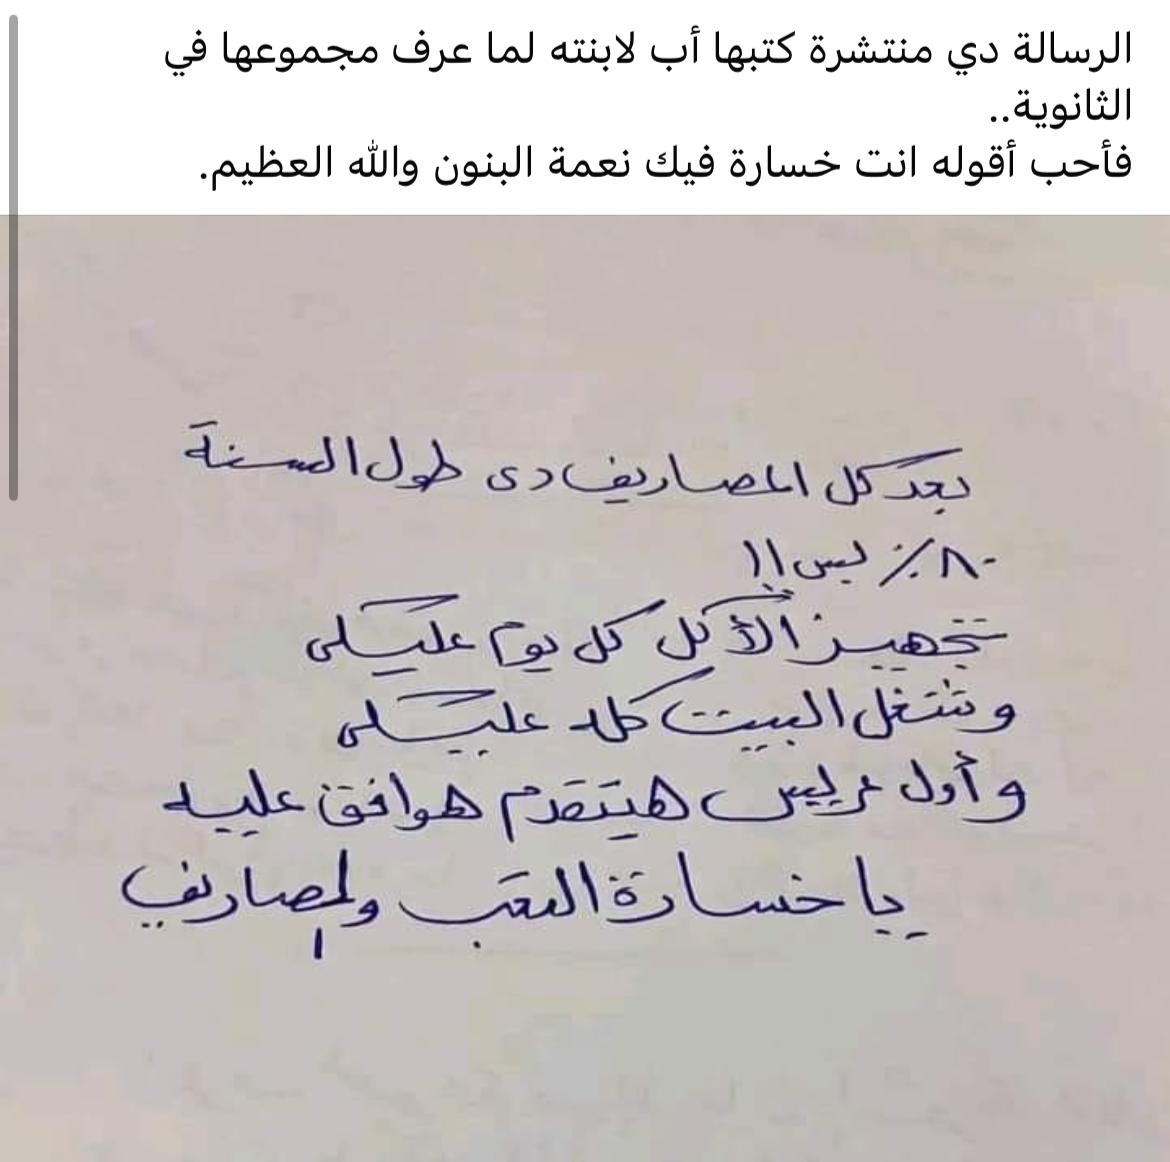 الرسالة دي منتشرة كتبها أب لابنته لما عرف مجموعها في
الثانوية..
فأحب أقوله انت خسارة فيك نعمة البنون والله العظيم.
بعد كل المصاريف دى طول السنة
٨٠٪ بس !!
تجهيز الأكل كل يوم عليكى
وشغل البيت كله عليكى
وأول عريس هيتقدم هوافق عليه
يا خسارة التعب والمصاريف